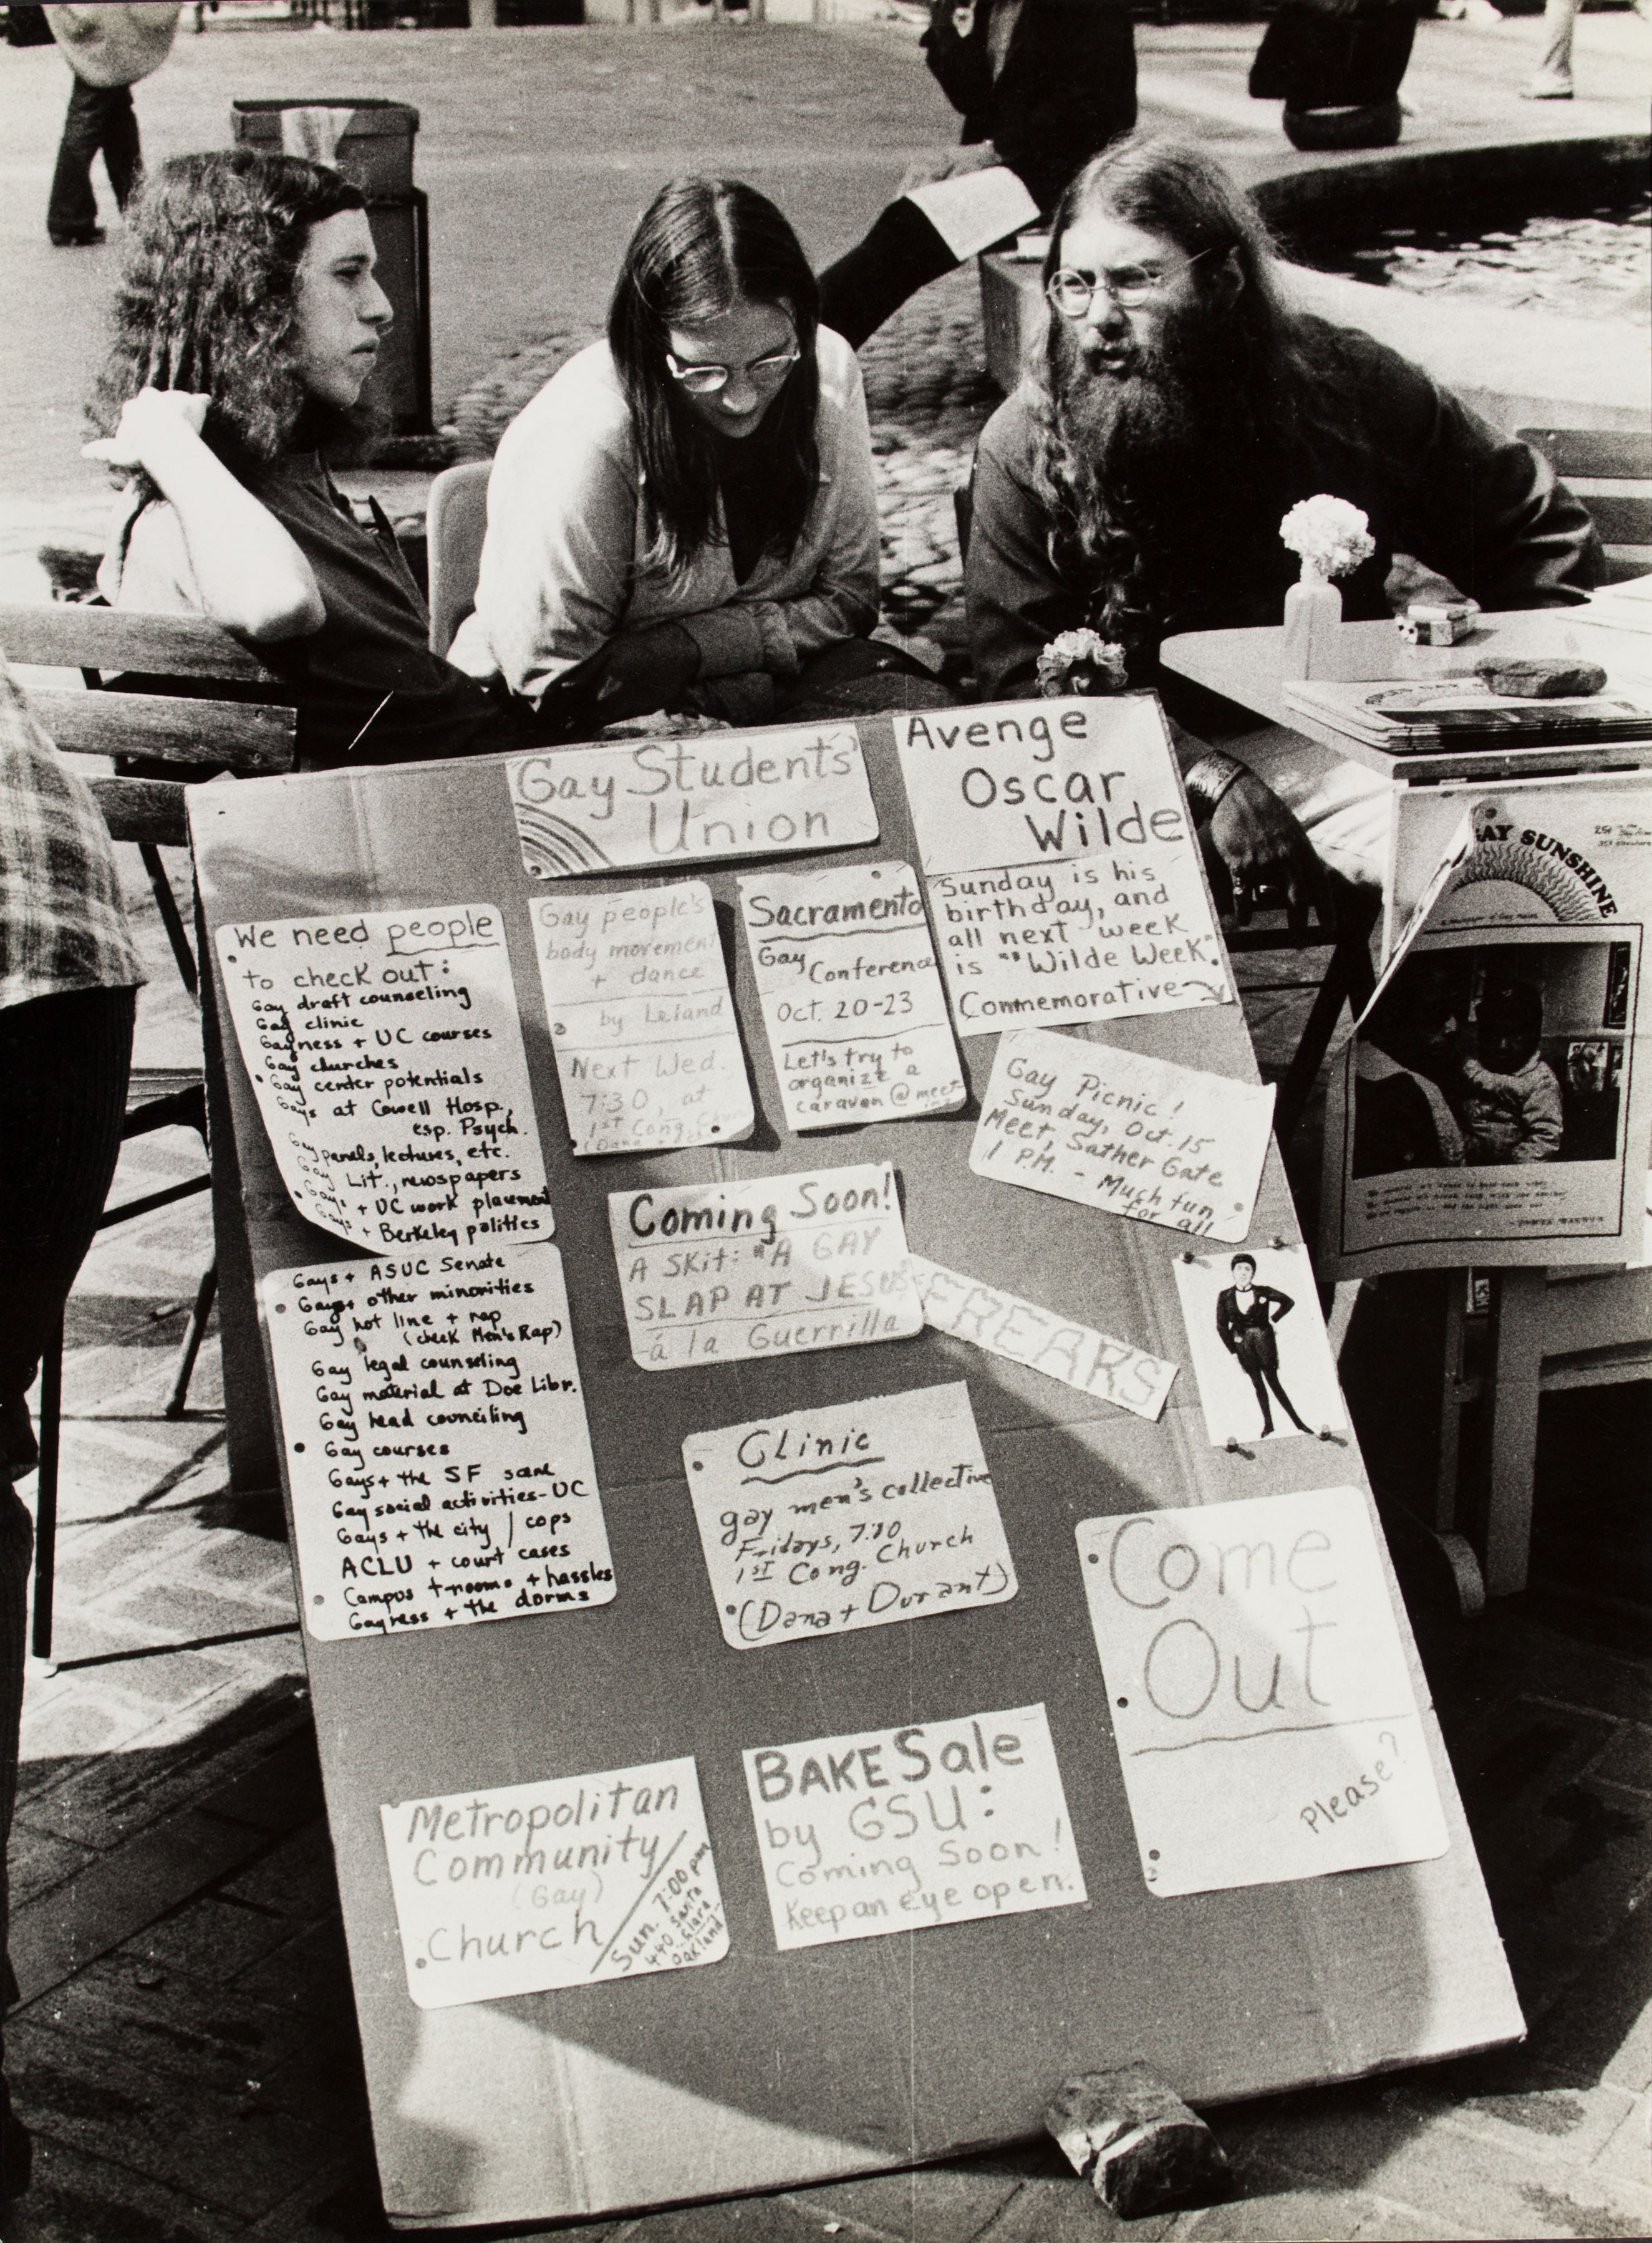 Gay Students'
Union
Avenge
Oscar
Wilde
Sunday is his
birthday, and
all next week
is "Wilde Week".
Commemorative
We need people
to check out:
Gay draft counseling
Gay clinic
Gayness + UC courses
Gay churches
Gay center potentials
Gays at Cowell Hosp.,
esp. Psych.
Gay panels, lectures, etc.
Gay Lit., newspapers
Gays + UC work placement
Gays + Berkeley politics
Gays + ASUC Senate
Gays + other minorities
Gay hot line + rap
(check Men's Rap)
Gay legal counseling
Gay material at Doe Libr.
Gay head counciling
Gay courses
Gays + the SF scene
Gay social activities - UC
Gays + the city / cops
ACLU + court cases
Campus t-rooms + hassles
Gayness + the dorms
Gay people's
body movement
+ dance
by Leland
Next Wed.
7:30, at
1st Cong. Church
Sacramento
Gay
Conference
Oct. 20-23
Let's try to
organize a
caravan @ meet
Gay Picnic!
Sunday, Oct. 15
Meet, Sather Gate
1 P.M. - Much fun
for all
Coming Soon!
A SKIT: "A GAY
SLAP AT JESUS
FREAKS
à la Guerrilla
Clinic
gay men's collective
Fridays, 7:30
1st Cong. Church
(Dana + Durant)
Come
Out
Please?
Metropolitan
Community
(Gay)
Church
Sun. 7:00 pm
440 Santa
Clara
Oakland
BAKE Sale
by GSU:
Coming Soon!
Keep an eye open.
GAY SUNSHINE
25¢